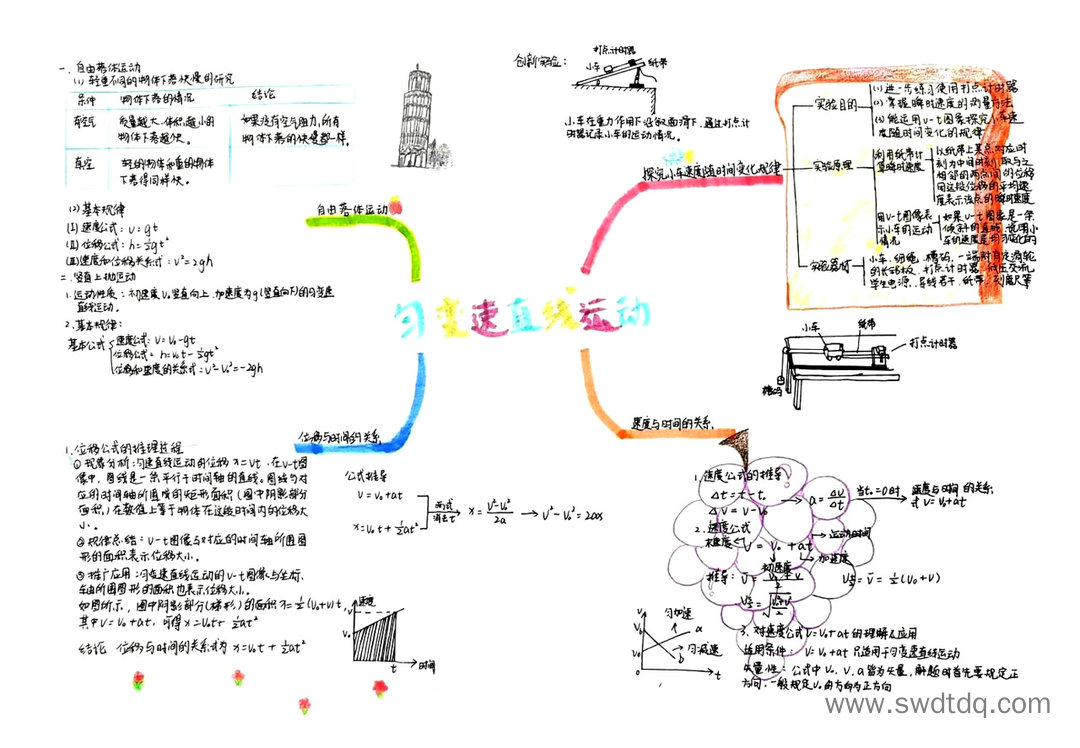 匀变速直线运动
自由落体运动
一、自由落体运动
(1) 轻重不同的物体下落快慢的研究
条件 物体下落的情况 结论
有空气 质量越大、体积越小的
物体下落越快。
真空 轻的物体和重的物体
下落得同样快。
如果没有空气阻力,所有
物体下落的快慢都一样。
(2) 基本规律
(I) 速度公式:v=gt
(II) 位移公式:h=½gt²
(III) 速度和位移关系式:v²=2gh
二、竖直上抛运动
1.运动性质:初速度v₀竖直向上,加速度为g(竖直向下)的匀变速
直线运动。
2.基本规律:
基本公式
速度公式:v=v₀-gt
位移公式:h=v₀t-½gt²
位移和速度的关系式:v²-v₀²=-2gh
创新实验:
打点计时器
小车
纸带
小车在重力作用下沿斜面滑下,通过打点计
时器记录小车的运动情况。
探究小车速度随时间变化规律
实验目的
(1) 进一步练习使用打点计时器
(2) 掌握瞬时速度的测量方法
(3) 能运用v-t图象探究小车速
度随时间变化的规律
实验原理
利用纸带计
算瞬时速度
以纸带上某点对应时
刻为中间时刻,取与之
相邻的两点间的位移
用这段位移的平均速
度表示该点的瞬时速度
用v-t图像表
示小车的运动
情况
如果v-t图像是一条
倾斜的直线,说明小
车的速度是均匀变化的
实验器材
小车、细绳、槽码、一端附有定滑轮
的长木板、打点计时器、低压交流
学生电源、导线若干、纸带、刻度尺等
小车
纸带
打点计时器
槽码
位移与时间的关系
1.位移公式的推理过程
① 现象分析:匀速直线运动的位移x=vt,在v-t图
像中,图线是一条平行于时间轴的直线。图线与对
应的时间轴所围成的矩形面积(图中阴影部分
面积)在数值上等于物体在这段时间内的位移大
小。
② 规律总结:v-t图像与对应的时间轴所围图
形的面积表示位移大小。
③ 推广应用:匀变速直线运动的v-t图像与坐标
轴所围图形的面积也表示位移大小。
如图所示,图中阴影部分(梯形)的面积x=½(v₀+v)t,
其中v=v₀+at,可得x=v₀t+½at²
结论 位移与时间的关系式为 x=v₀t+½at²
公式推导
v=v₀+at
x=v₀t+½at²
两式
消去t
x=(v²-v₀²)/2a → v²-v₀²=2ax
速度
v
v₀
t
时间
速度与时间的关系
1.速度公式的推导
Δt=t-t₀
Δv=v-v₀
→ a=Δv/Δt
当t₀=0时
速度与时间的关系
式 v=v₀+at
2.速度公式
末速度 v=v₀+at
运动时间
加速度
初速度
推导:v̄=(v₀+v)/2
v̄=½(v₀+v)
匀加速
a
匀减速
b
v
v₀
0
t
3、对速度公式v=v₀+at的理解&应用
适用条件:v=v₀+at只适用于匀变速直线运动
矢量性:公式中v₀、v、a皆为矢量,解题时首先要规定正
方向,一般规定v₀的方向为正方向
www.swdtdq.com